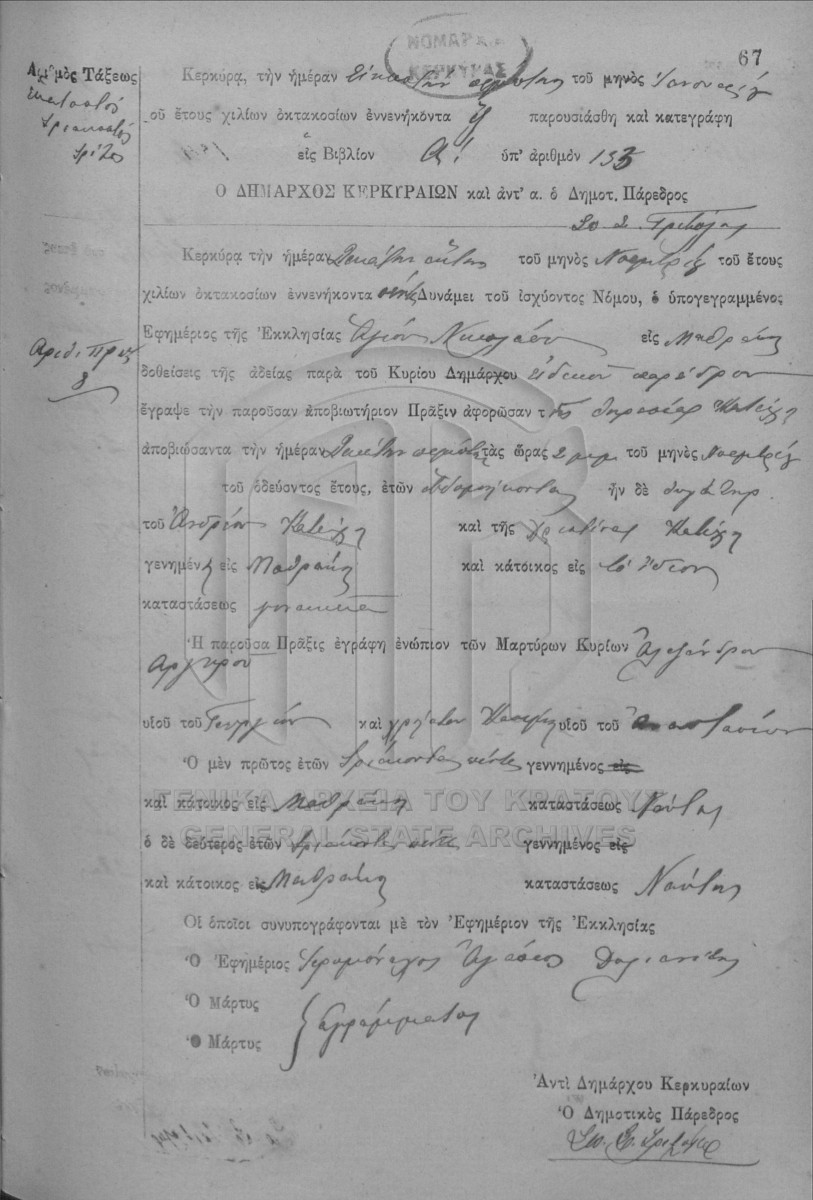 ΝΟΜΑΡΧ
ΚΕΡΚΥΡΑΣ
67
Ἀριθμὸς Τάξεως
ἑκατοστός
τριακοστός
τρίτος
Κερκύρᾳ, τὴν ἡμέραν Εἰκοστὴν πέμπτην τοῦ μηνὸς Ἰανουαρίου
οῦ ἔτους χιλίων ὀκτακοσίων ἐννενήκοντα παρουσιάσθη καὶ κατεγράφη
εἰς Βιβλίον Α! ὑπ' ἀριθμὸν 133
Ο ΔΗΜΑΡΧΟΣ ΚΕΡΚΥΡΑΙΩΝ καὶ ἀντ' α. ὁ Δημοτ. Πάρεδρος
Κερκύρᾳ τὴν ἡμέραν Δεκάτην ἕκτην τοῦ μηνὸς Νοεμβρίου τοῦ ἔτους
χιλίων ὀκτακοσίων ἐννενήκοντα Δυνάμει τοῦ ἰσχύοντος Νόμου, ὁ ὑπογεγραμμένος
Ἐφημέριος τῆς Ἐκκλησίας Ἁγίου Νικολάου εἰς Μαθράκι
Ἀριθ. Πρωτ.
δοθείσεις τῆς ἀδείας παρὰ τοῦ Κυρίου Δημάρχου εἰδικοῦ παρέδρου
ἔγραψε τὴν παροῦσαν ἀποβιωτήριον Πρᾶξιν ἀφορῶσαν τῆς Κατέχη
ἀποβιώσαντα τὴν ἡμέραν Δεκάτην πέμπτην τὰς ὥρας 2 μμ τοῦ μηνὸς Νοεμβρίου
τοῦ ὁδεύσαντος ἔτους, ἐτῶν ἑβδομήκοντα ἦν δὲ θυγάτηρ
τοῦ Ἀνδρέου Κατέχη καὶ τῆς Χριστίνας Κατέχη
γενημένη εἰς Μαθράκι καὶ κάτοικος εἰς τὸ ἴδιον
καταστάσεως
Ἡ παροῦσα Πρᾶξις ἐγράφη ἐνώπιον τῶν Μαρτύρων Κυρίων Ἀλεξάνδρου
Ἀργυροῦ
υἱοῦ τοῦ Γεωργίου καὶ Χρήστου υἱοῦ τοῦ Ἀναστασίου
Ὁ μὲν πρῶτος ἐτῶν τριάκοντα πέντε γεννημένος εἰς
καὶ κάτοικος εἰς Μαθράκι καταστάσεως Ναύτης
ὁ δὲ δεύτερος ἐτῶν τριάκοντα πέντε γεννημένος εἰς
καὶ κάτοικος εἰς Μαθράκι καταστάσεως Ναύτης
Οἱ ὁποῖοι συνυπογράφονται μὲ τὸν Ἐφημέριον τῆς Ἐκκλησίας
Ὁ Ἐφημέριος Ἱερομόναχος
Ὁ Μάρτυς
Ἀγράμματοι
Ὁ Μάρτυς
Ἀντὶ Δημάρχου Κερκυραίων
Ὁ Δημοτικὸς Πάρεδρος
ΓΕΝΙΚΑ ΑΡΧΕΙΑ ΤΟΥ ΚΡΑΤΟΥΣ
GENERAL STATE ARCHIVES